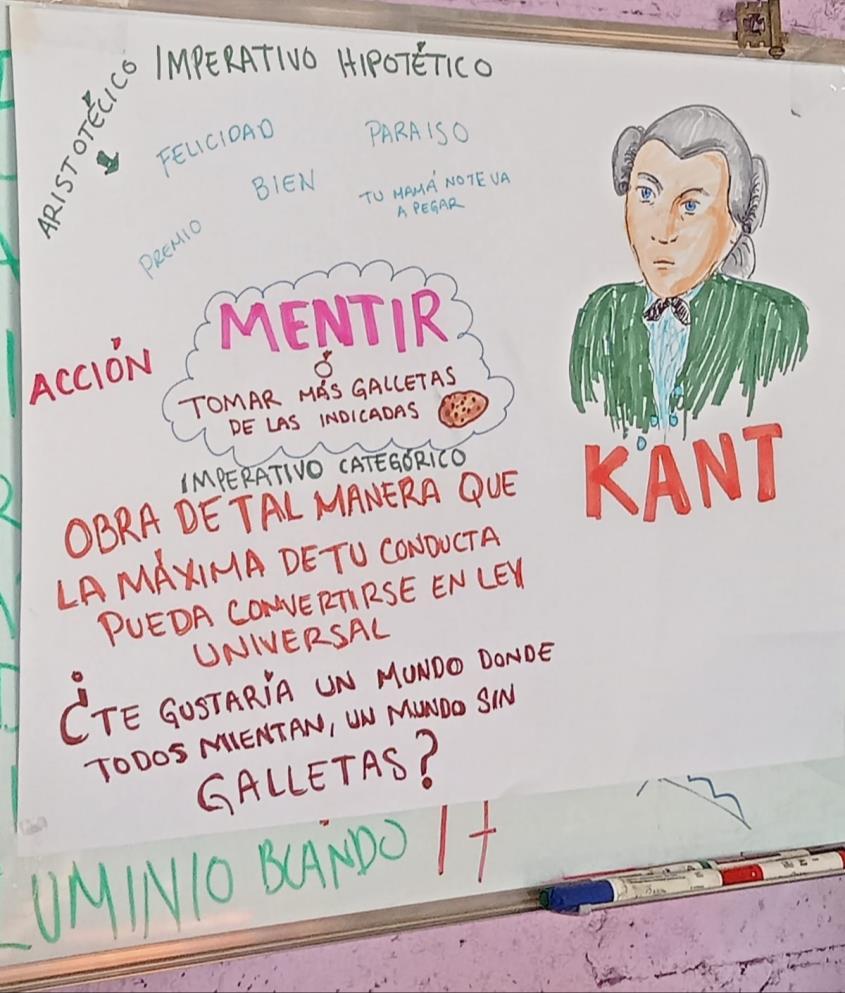 IMPERATIVO HIPOTÉTICO
ARISTOTÉLICO
FELICIDAD
PARAISO
BIEN
TU MAMÁ NO TE VA
A PEGAR
PREMIO
ACCIÓN
MENTIR
Ó
TOMAR MÁS GALLETAS
DE LAS INDICADAS
IMPERATIVO CATEGÓRICO
OBRA DE TAL MANERA QUE
LA MÁXIMA DE TU CONDUCTA
PUEDA CONVERTIRSE EN LEY
UNIVERSAL
¿TE GUSTARÍA UN MUNDO DONDE
TODOS MIENTAN, UN MUNDO SIN
GALLETAS?
KANT
UMINIO BLANDO